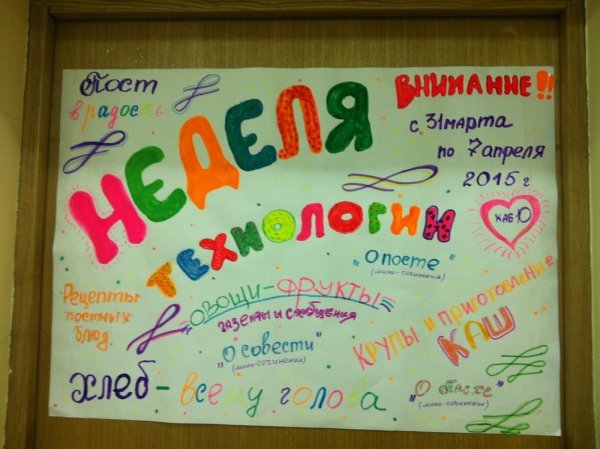 Пост
в радость
НЕДЕЛЯ
ТЕХНОЛОГИИ
ВНИМАНИЕ!!
с 31 марта
по 7 апреля
2015 г
КАБ 10
"О посте"
(мини-сочинения)
Рецепты
постных
блюд.
"ОВОЩИ-ФРУКТЫ"
газеты и сообщения
КРУПЫ и приготовление
КАШ
"О совести"
(мини-сочинения)
Хлеб - всему голова
"О Пасхе"
(мини-сочинения)